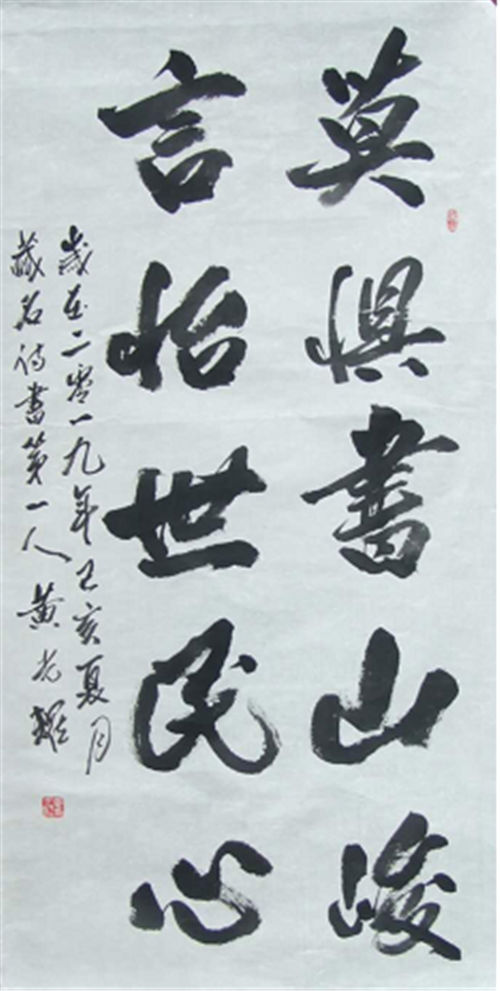 莫惧書山峻
言怡世民心
歲在二零一九年己亥夏月
藏名诗書第一人 黄光耀